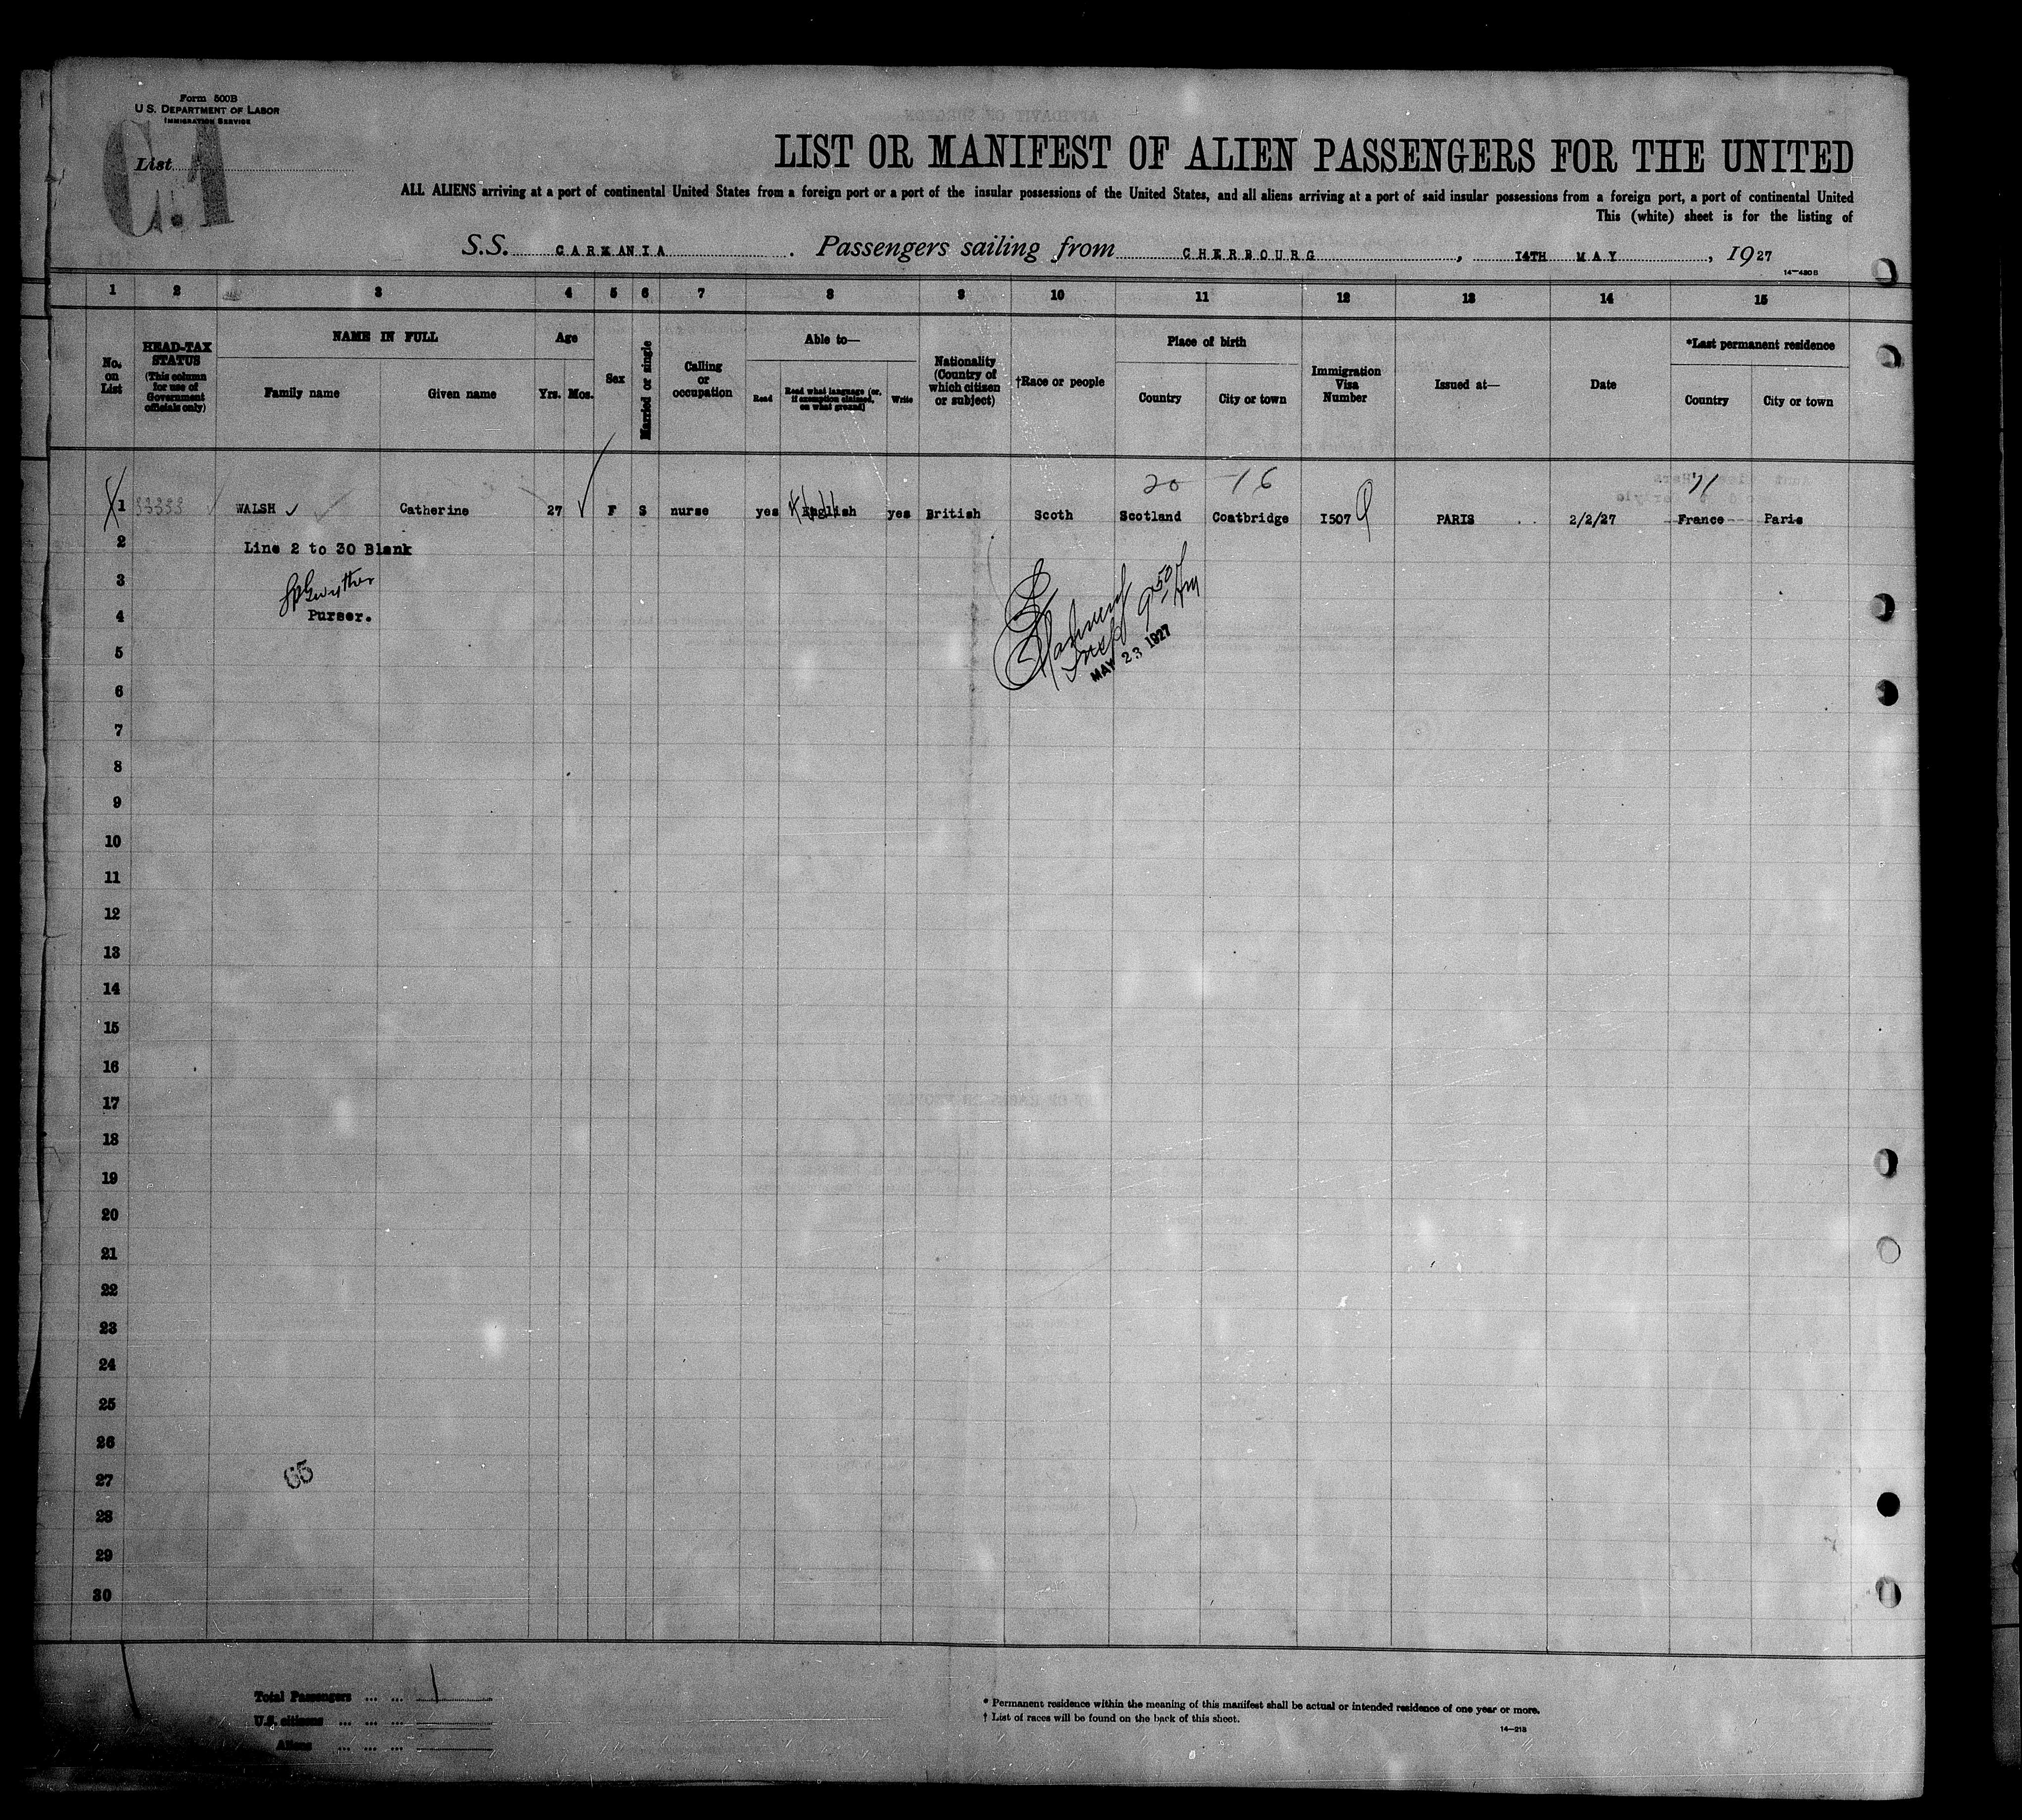 Form 500B
U.S. DEPARTMENT OF LABOR
IMMIGRATION SERVICE
List
C.1
LIST OR MANIFEST OF ALIEN PASSENGERS FOR THE UNITED
ALL ALIENS arriving at a port of continental United States from a foreign port or a port of the insular possessions of the United States, and all aliens arriving at a port of said insular possessions from a foreign port, a port of continental United
This (white) sheet is for the listing of
S.S. CARMANIA. Passengers sailing from CHERBOURG, 14TH MAY, 1927
14-480 B
1 2 3 4 5 6 7 8 9 10 11 12 13 14 15
No. on List
HEAD-TAX STATUS (This column for use of Government officials only)
NAME IN FULL
Family name Given name
Age
Yrs. Mos.
Sex
Married or single
Calling or occupation
Able to—
Read Read what language (or, if exemption claimed, on what ground) Write
Nationality (Country of which citizen or subject)
†Race or people
Place of birth
Country City or town
Immigration Visa Number
Issued at—
Date
*Last permanent residence
Country City or town
20 -16
1 WALSH Catherine 27 F S nurse yes English yes British Scoth Scotland Coatbridge 1507 PARIS 2/2/27 France Paris
2 Line 2 to 30 Blank
3
4 Purser.
MAY 23 1927
5
6
7
8
9
10
11
12
13
14
15
16
17
18
19
20
21
22
23
24
25
26
27 65
28
29
30
Total Passengers ... ... 1
U.S. citizens ... ... ...
Aliens ... ... ...
* Permanent residence within the meaning of this manifest shall be actual or intended residence of one year or more.
† List of races will be found on the back of this sheet.
14-218